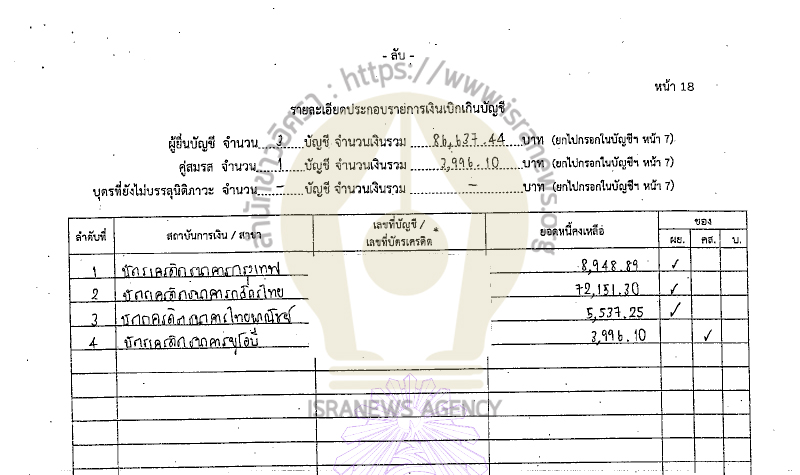 - ลับ -
หน้า 18
รายละเอียดประกอบรายการเงินเบิกเกินบัญชี
ผู้ยื่นบัญชี จำนวน 3 บัญชี จำนวนเงินรวม 86,637.44 บาท (ยกไปกรอกในบัญชีฯ หน้า 7)
คู่สมรส จำนวน 1 บัญชี จำนวนเงินรวม 3,996.10 บาท (ยกไปกรอกในบัญชีฯ หน้า 7)
บุตรที่ยังไม่บรรลุนิติภาวะ จำนวน - บัญชี จำนวนเงินรวม - บาท (ยกไปกรอกในบัญชีฯ หน้า 7)
ลำดับที่ สถาบันการเงิน / สาขา เลขที่บัญชี / เลขที่บัตรเครดิต ยอดหนี้คงเหลือ ของ
ผย. คส. บ.
1 บัตรเครดิตธนาคารกรุงเทพ 8,948.89 ✓
2 บัตรเครดิตธนาคารกสิกรไทย 72,151.30 ✓
3 บัตรเครดิตธนาคารไทยพาณิชย์ 5,537.25 ✓
4 บัตรเครดิตธนาคารยูโอบี 3,996.10 ✓
สำนักข่าวอิศรา : https://www.isranews.org
ISRANEWS AGENCY